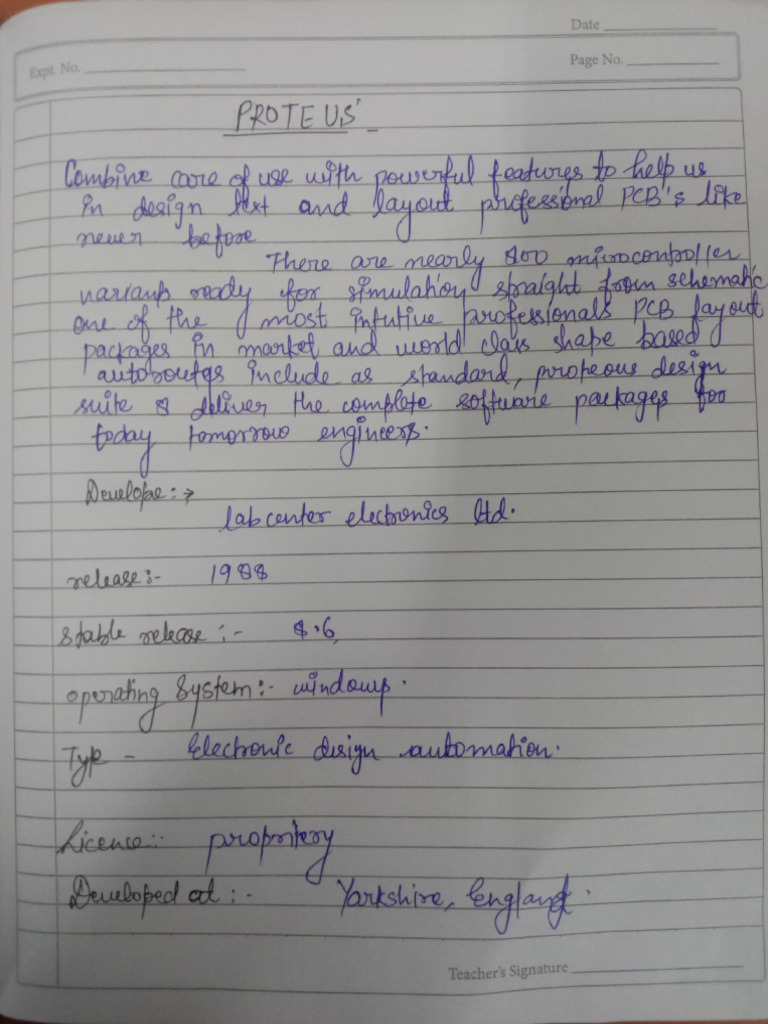 Date
Expt. No.
Page No.
PROTEUS
Combine care of use with powerful features to help us
in design text and layout professional PCB's like
never before
There are nearly 800 microcontroller
variants ready for simulation straight from schematic
one of the most intutive professionals PCB layout
packages in market and world class shape based
include as standard, design
suite & deliver the complete software packages for
today tomorrow engineers.
Develope :→
labcenter electronics ltd.
release:- 1988
Stable release :- 8.6
operating System:- windows.
Type - Electronic design automation.
Licence:- propritery
Developed at :- Yorkshire, England.
Teacher's Signature